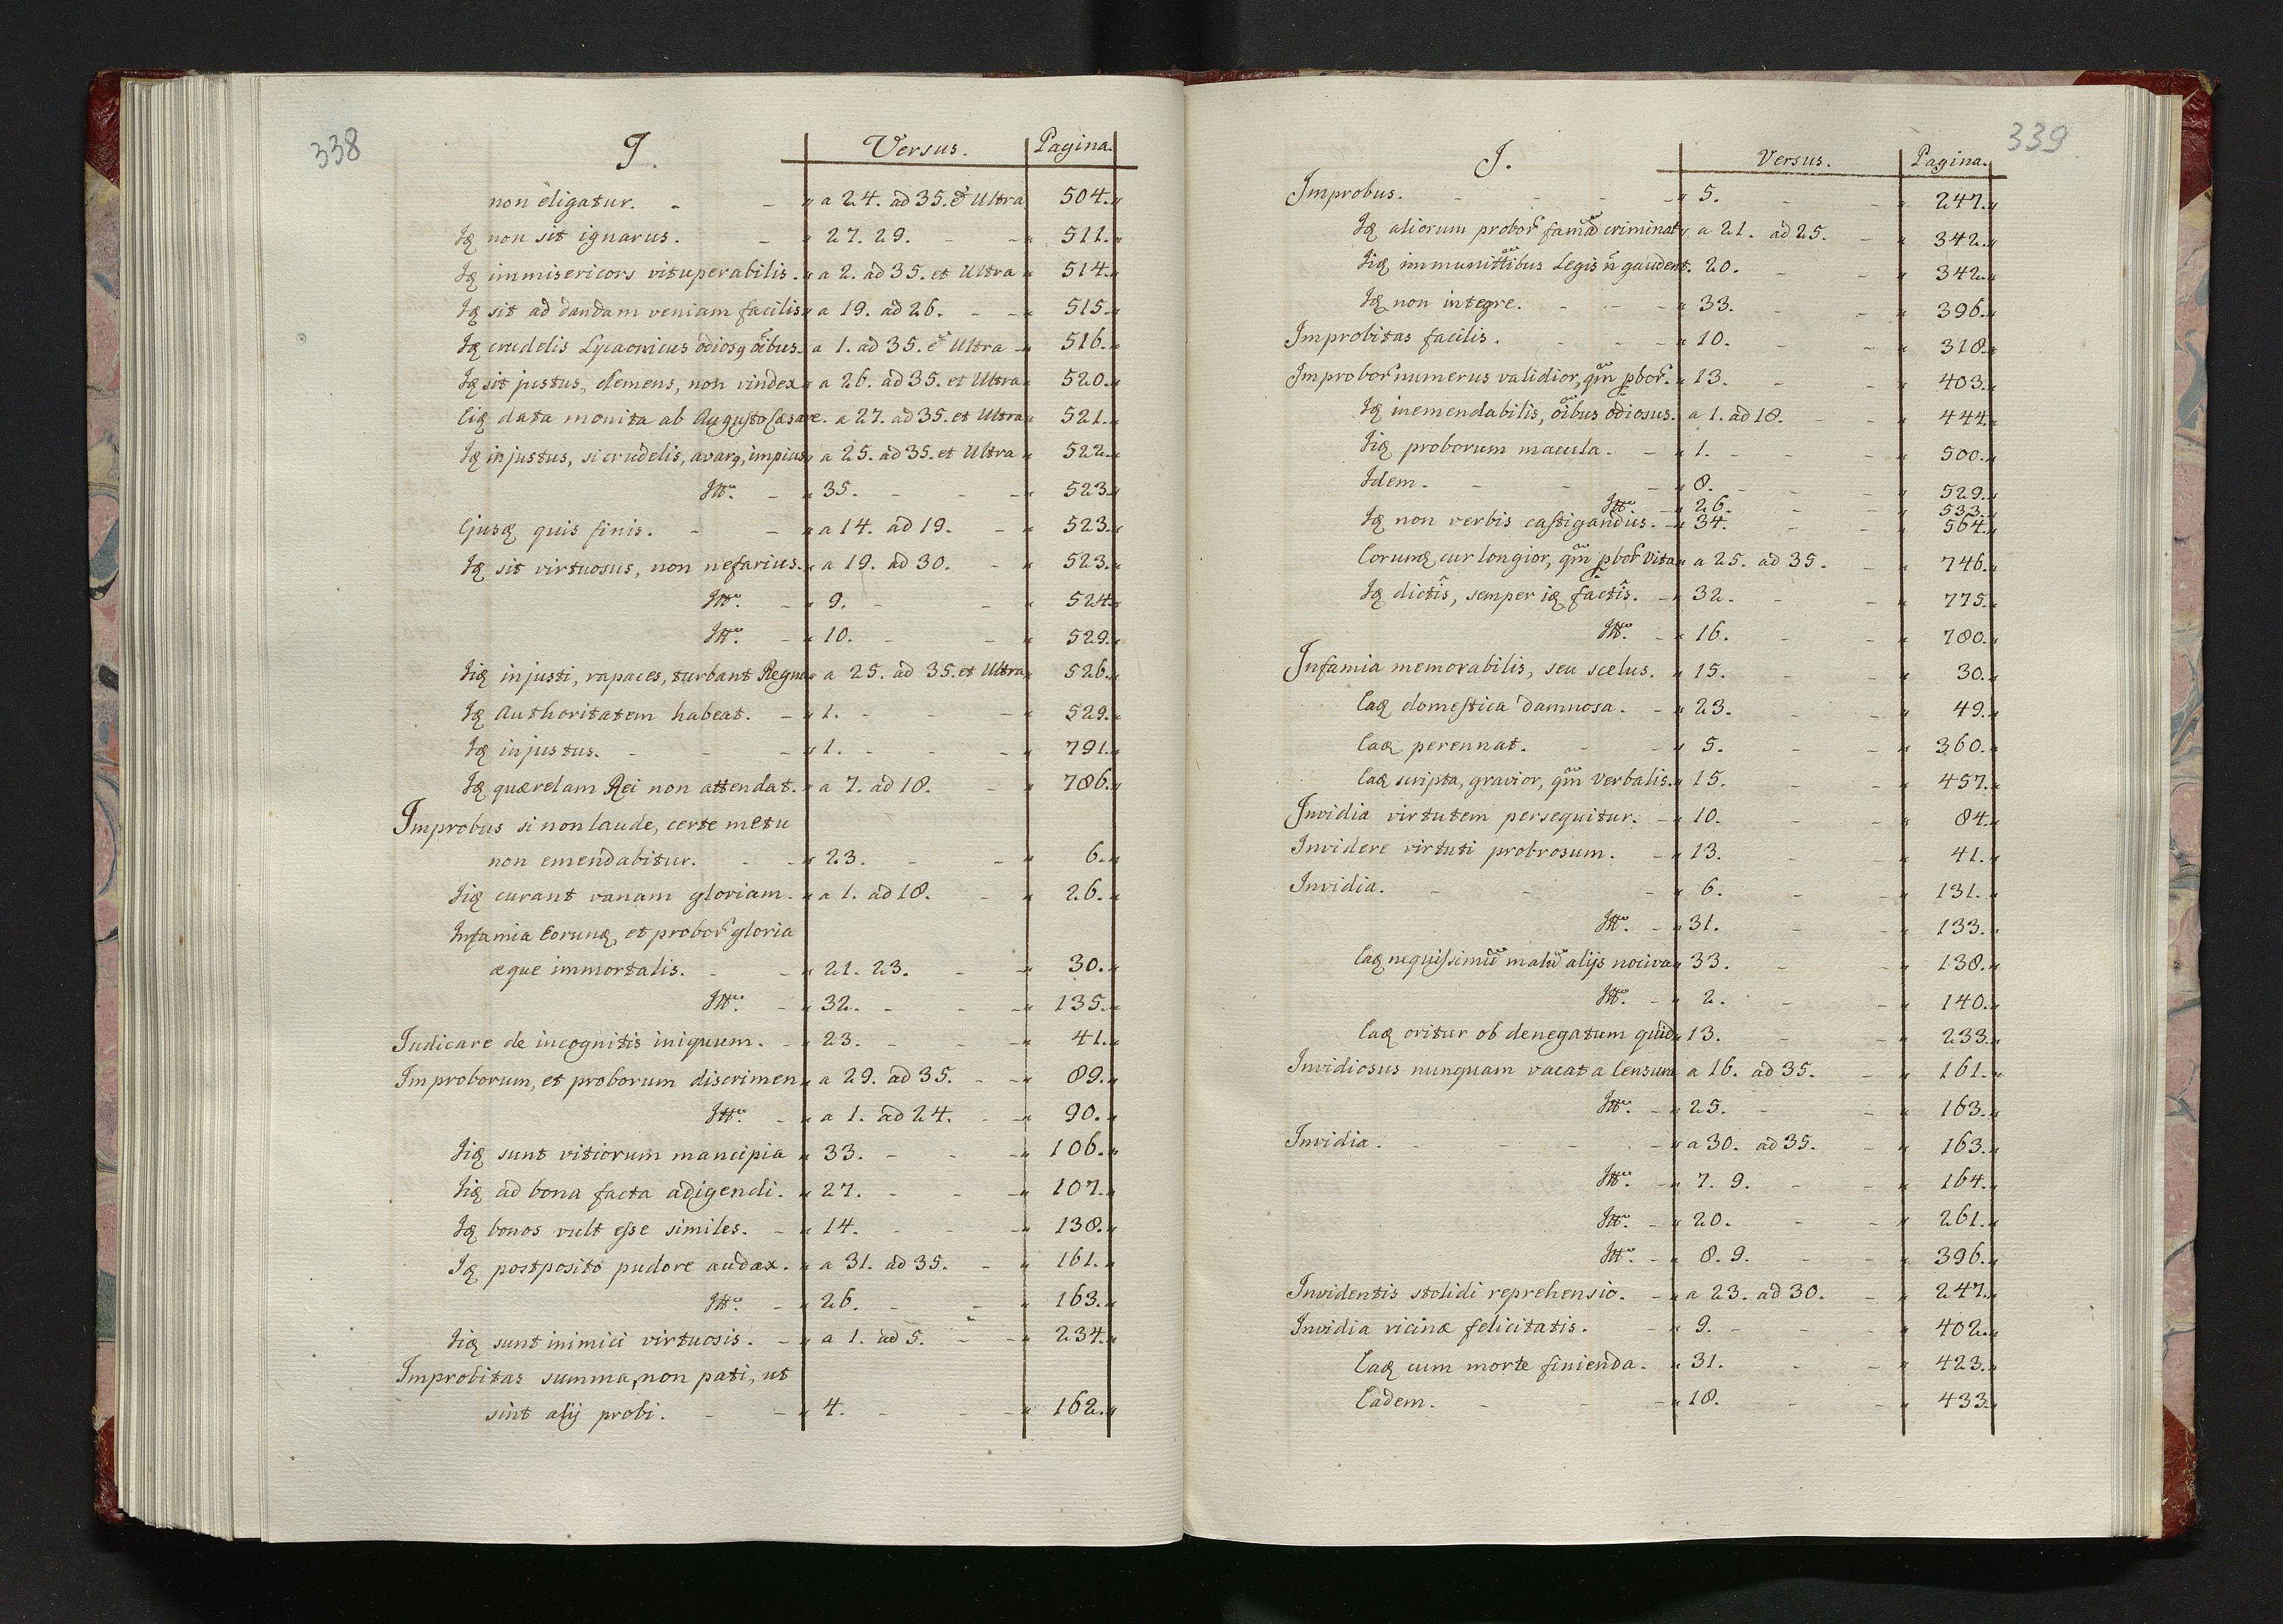 338
I. Versus. Pagina.
non eligatur. - - „ a 24. ad 35. et Ultra „ 504. „
Iq non sit ignarus. - „ 27. 29. - - „ 511. „
Iq immisericors vituperabilis. „ a 2. ad 35. et Ultra „ 514. „
Iq sit ad dandam veniam facilis „ a 19. ad 26. - - „ 515. „
Iq crudelis Lycaonicus odiosq oibus. a 1. ad 35. et Ultra - „ 516. „
Iq sit justus, clemens, non vindex „ a 26. ad 35. et Ultra „ 520. „
Eiq data monita ab Augusto Cæsare. a 27. ad 35. et Ultra „ 521. „
Iq injustus, si crudelis, avarq, impius „ a 25. ad 35. et Ultra „ 522. „
Itt. - „ 35. - - - „ 523. „
Ejusq quis finis. - - „ a 14. ad 19. - „ 523. „
Iq sit virtuosus, non nefarius. „ a 19. ad 30. - „ 523. „
Itt. - „ 9. - - „ 524. „
Itt. - „ 10. - - „ 529. „
Iiq injusti, rapaces, turbant Regna „ a 25. ad 35. et Ultra „ 526. „
Iq Authoritatem habeat. - „ 1. - - - „ 529. „
Iq injustus. - - - „ 1. - - - „ 791. „
Iq quærelam Rei non attendat. „ a 7. ad 18. - „ 786. „
Improbus si non laude, certe metu
non emendabitur. - - „ 23. - - „ 6. „
Iiq curant vanam gloriam. „ a 1. ad 18. - „ 26. „
Infamia Eorunq, et probor gloria
æque immortalis. - - „ 21. 23. - - „ 30. „
Itt. - „ 32. - - - „ 135. „
Iudicare de incognitis iniquum. - „ 23. - - - „ 41. „
Improborum, et proborum discrimen „ a 29. ad 35. - - „ 89. „
Itt. - „ a 1. ad 24. - - „ 90. „
Iiq sunt vitiorum mancipia „ 33. - - - „ 106. „
Iiq ad bona facta adigendi. „ 27. - - - „ 107. „
Iq bonos vult esse similes. - „ 14. - - - „ 138. „
Iq postposito pudore audax. „ a 31. ad 35. - „ 161. „
Itt. - „ 26. - - „ 163. „
Iiq sunt inimici virtuosis. - „ a 1. ad 5. - - „ 234. „
Improbitas summa, non pati, ut
sint alij probi. - - „ 4. - - - „ 162. „
339
I. Versus. Pagina.
Improbus. - - - - „ 5. - - „ 247. „
Iq aliorum probor famã criminat „ a 21. ad 25. - „ 342. „
Iiq immunittibus Legis ñ gaudent. 20. - - „ 342. „
Iq non integre. - - - „ 33. - - „ 396. „
Improbitas facilis. - - - „ 10. - - „ 318. „
Improbor numerus validior, qm pbor. „ 13. - - „ 403. „
Iq inemendabilis, oibus odiosus. „ a 1. ad 18. - - „ 444. „
Iiq proborum macula. - „ 1. - - - „ 500. „
Idem. - - - „ 8. - - - „ 529. „
Itt. - „ 26. - - „ 533. „
Iq non verbis castigandus. - „ 34. - - „ 564. „
Eorumq cur longior, qm pbor vita „ a 25. ad 35. - „ 746. „
Iq dictis, semper iq factis. - „ 32. - - „ 775. „
Itt. - „ 16. - - „ 780. „
Infamia memorabilis, seu scelus. „ 15. - - „ 30. „
Eaq domestica damnosa. - „ 23. - - „ 49. „
Eaq perennat. - - „ 5. - - „ 360. „
Eaq scripta, gravior, qm Verbalis. „ 15. - - „ 457. „
Invidia virtutem persequitur. - „ 10. - - „ 84. „
Invidere virtuti probrosum. - „ 13. - - „ 41. „
Invidia. - - - „ 6. - - „ 131. „
Itt. - „ 31. - - „ 133. „
Eaq nequissimũ malũ alijs nociva „ 33. - - „ 138. „
Itt. - „ 2. - - „ 140. „
Eaq oritur ob denegatum quid „ 13. - - „ 233. „
Invidiosus nunquam vacat a Censura a 16. ad 35. - „ 161. „
Itt. - „ 25. - - „ 163. „
Invidia. - - - - „ a 30. ad 35. - „ 163. „
Itt. - „ 7. 9. - - „ 164. „
Itt. - „ 20. - - „ 261. „
Itt. - „ 8. 9. - - „ 396. „
Invidentis stolidi reprehensio. - „ a 23. ad 30. - „ 247. „
Invidia vicinæ felicitatis. - „ 9. - - - „ 402. „
Eaq cum morte finienda. - „ 31. - - „ 423. „
Eadem. - - - „ 18. - - „ 433. „